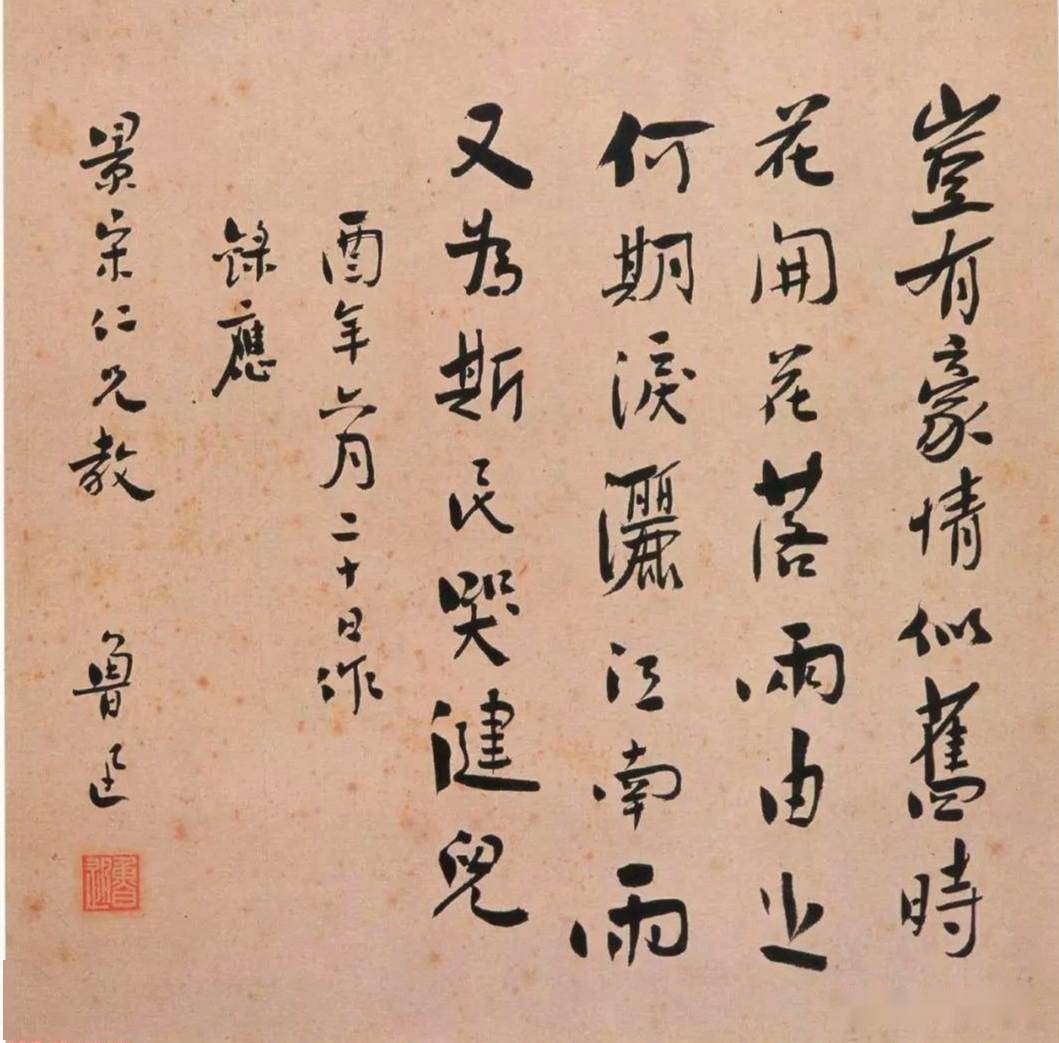 豈有豪情似舊時
花開花落兩由之
何期淚灑江南雨
又為斯民哭健兒
酉年六月二十日作
錄應
景宋仁兄教
魯迅
魯迅